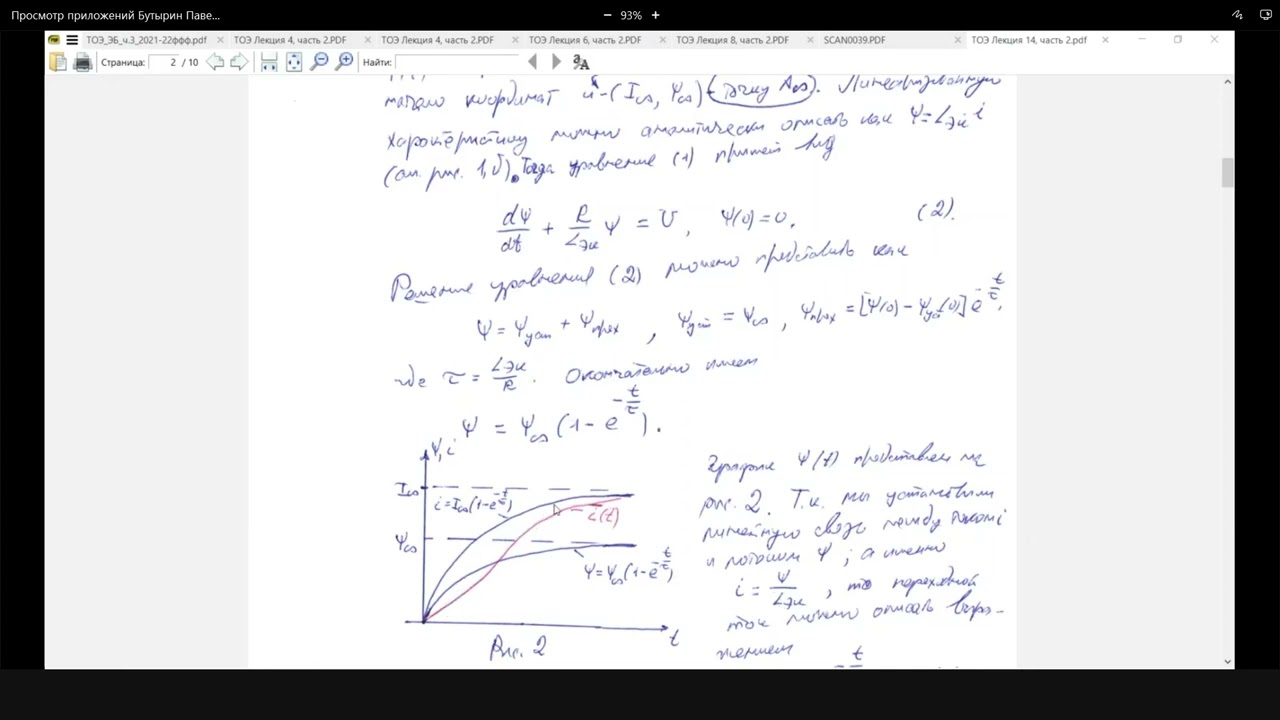 Просмотр приложений Бутырин Паве...
93%
ТОЭ_ЭБ_ч.3_2021-22ффф.pdf
ТОЭ Лекция 4, часть 2.PDF
ТОЭ Лекция 4, часть 2.PDF
ТОЭ Лекция 6, часть 2.PDF
ТОЭ Лекция 8, часть 2.PDF
SCAN0039.PDF
ТОЭ Лекция 14, часть 2.pdf
Страница: 2 / 10
Найти:
начало координат и -(I∞, Ψ∞) точку A∞). Линеаризованную
характеристику можно аналитически описать как Ψ=Lэк i
(см. рис. 1,б). Тогда уравнение (1) примет вид
dΨ/dt + R/Lэк Ψ = U, Ψ(0)=0, (2).
Решение уравнения (2) можно представить как
Ψ = Ψуст + Ψпрех, Ψуст = Ψ∞, Ψпрех = [Ψ(0) - Ψуст(0)] e^(-t/τ),
где τ = Lэк/R. Окончательно имеем
Ψ = Ψ∞ (1 - e^(-t/τ)).
Ψ, i
I∞
i=I∞(1-e^(-t/τ))
i(t)
Ψ∞
Ψ=Ψ∞(1-e^(-t/τ))
t
Рис. 2
График Ψ(t) представлен на
рис. 2. Т.к. мы установили
линейную связь между током i
и потоком Ψ, а именно
i = Ψ/Lэк, то переходной
ток можно описать выра-
жением
t